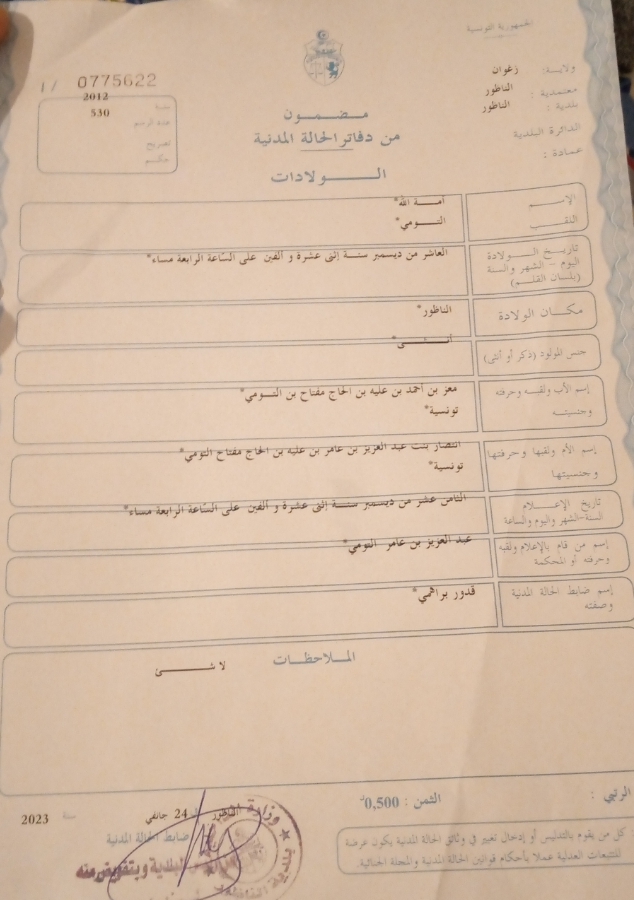 الجمهورية التونسية
ولاية: زغوان
معتمدية: الناظور
بلدية: الناظور
الدائرة البلدية
عمادة:
0775622 / 1
سنة 2012
عدد الرسم 530
تصريح
حكم
مضمون
من دفاتر الحالة المدنية
الولادات
الإسم أمة الله*
اللقب التومي*
تاريخ الولادة العاشر من ديسمبر سنة إثنى عشرة و ألفين على الساعة الرابعة مساء*
اليوم - الشهر والسنة
(بلسان القلم)
مكان الولادة الناظور*
جنس المولود (ذكر أو أنثى) أنثى*
إسم الأب ولقبه وحرفته معز بن أحمد بن عليه بن الحاج مفتاح بن التومي*
وجنسيته تونسية*
إسم الأم ولقبها وحرفتها انتصار بنت عبد العزيز بن عامر بن عليه بن الحاج مفتاح التومي*
وجنسيتها تونسية*
تاريخ الإعلام الثامن عشر من ديسمبر سنة إثنى عشرة و ألفين على الساعة الرابعة مساء*
السنة-الشهر واليوم والساعة
إسم من قام بالإعلام ولقبه عبد العزيز بن عامر التومي*
وحرفته أو المحكمة
إسم ضابط الحالة المدنية قدور براهمي*
وصفته
الملاحظات
لا شئ
الرتبي:
الثمن: 0,500د
الناظور 24 جانفي سنة 2023
ضابط الحالة المدنية
البلدية وبتفويض منه
كل من يقوم بالتدليس أو إدخال تغيير في وثائق الحالة المدنية يكون عرضة
للتتبعات العدلية عملا بأحكام قوانين الحالة المدنية والمجلة الجنائية.